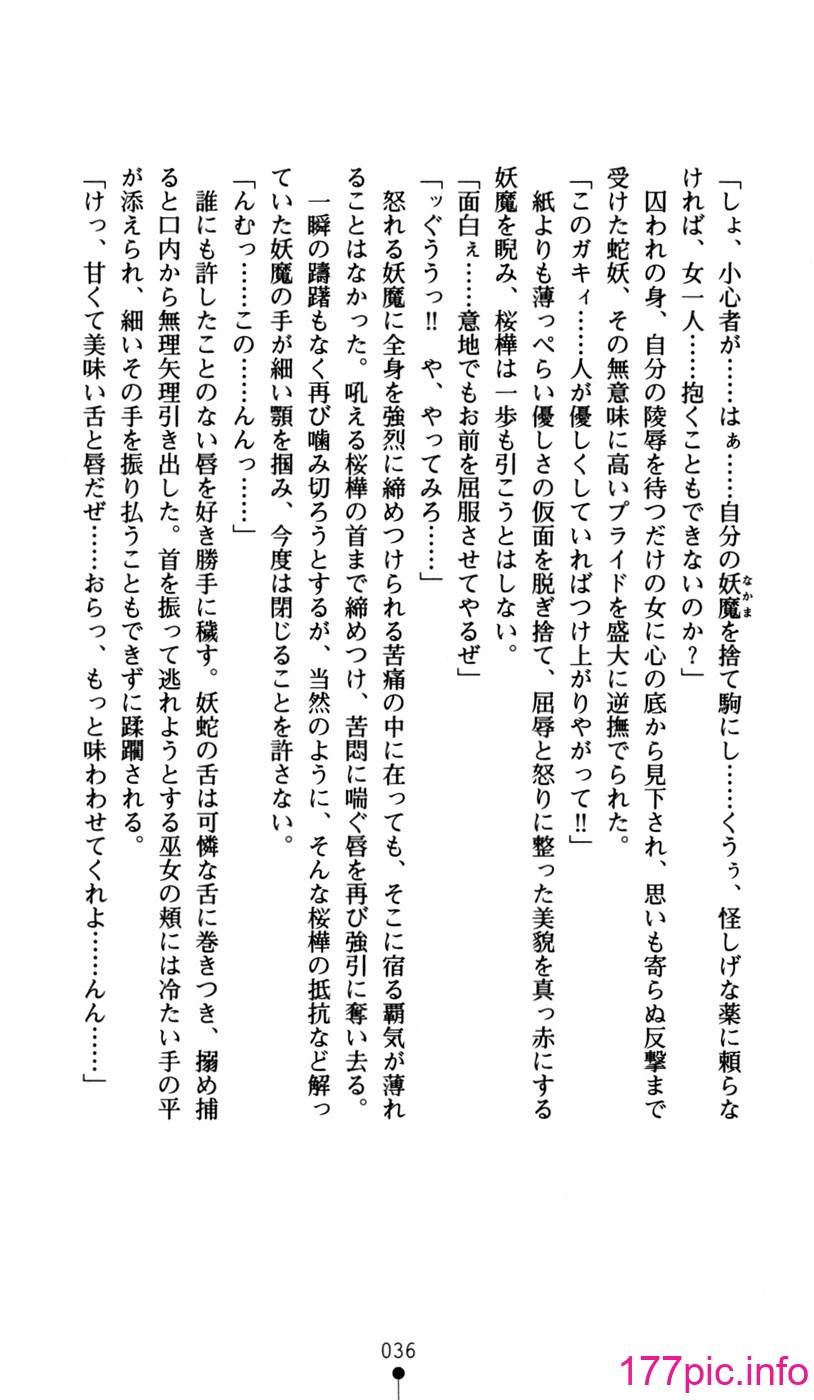 「しょ、小心者が……はぁ……自分の妖魔を捨て駒にし……くうぅ、怪しげな薬に頼らな
なかま
ければ、女一人……抱くこともできないのか？」
　囚われの身、自分の陵辱を待つだけの女に心の底から見下され、思いも寄らぬ反撃まで
受けた蛇妖、その無意味に高いプライドを盛大に逆撫でられた。
「このガキィ……人が優しくしていればつけ上がりやがって!!」
　紙よりも薄っぺらい優しさの仮面を脱ぎ捨て、屈辱と怒りに整った美貌を真っ赤にする
妖魔を睨み、桜樺は一歩も引こうとはしない。
「面白ぇ……意地でもお前を屈服させてやるぜ」
「ッぐううっ!!　や、やってみろ……」
　怒れる妖魔に全身を強烈に締めつけられる苦痛の中に在っても、そこに宿る覇気が薄れ
ることはなかった。吼える桜樺の首まで締めつけ、苦悶に喘ぐ唇を再び強引に奪い去る。
　一瞬の躊躇もなく再び噛み切ろうとするが、当然のように、そんな桜樺の抵抗など解っ
ていた妖魔の手が細い顎を掴み、今度は閉じることを許さない。
「んむっ……この……んんっ……」
　誰にも許したことのない唇を好き勝手に穢す。妖蛇の舌は可憐な舌に巻きつき、搦め捕
ると口内から無理矢理引き出した。首を振って逃れようとする巫女の頬には冷たい手の平
が添えられ、細いその手を振り払うこともできずに蹂躙される。
「けっ、甘くて美味い舌と唇だぜ……おらっ、もっと味わわせてくれよ……んん……」
036
177pic.info